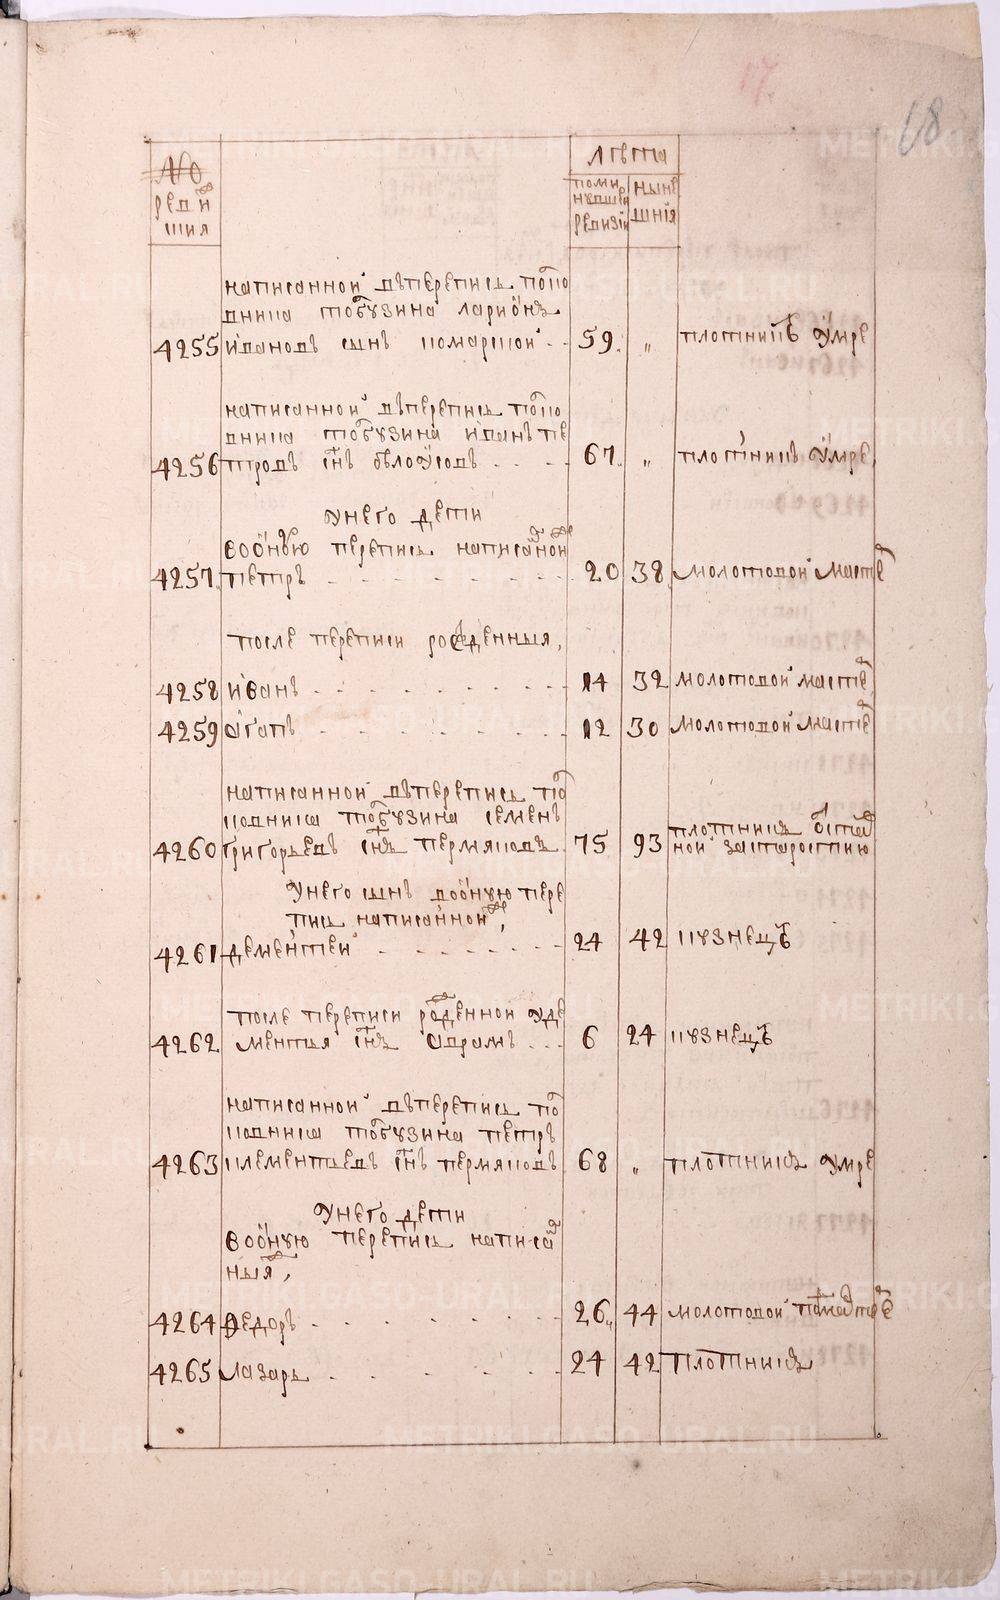 17.
68
№
ревизкия
лѣта
поми
нувшей
ревизіи
ныне
шнія
написанной въперепись полко
вника тобузина ларионъ
4255 ивановъ сынъ комарской 59. „ плотникъ умре
написанной въперепись полко
вника тобузина иванъ пе
4256 тровъ снъ белоусовъ 67. „ плотникъ умре,
унего дети
воонъю перепись написанной
4257. петръ 20 38. молотовой мастеръ
после переписи рожденныя,
4258 иванъ 14 32 молотовой мастеръ
4259 агапъ 12 30 молотовой мастеръ
написанной въперепись пол
ковника тобузина семенъ
4260 григорьевъ снъ пермяковъ 75 93 плотникъ отстав
ной застаростию
унего сынъ вооную пере
пись написанной,
4261 дементей 24 42 кузнецъ
после переписи рожденной уде
4262 ментья снъ авромъ 6 24 кузнецъ
написанной въперепись пол
ковника тобузина петръ
4263 клементьевъ снъ пермяковъ 68 „ плотникъ умре
унего дети
вооную перепись написан
ныя,
4264 федоръ 26„ 44 молотовой
4265 лазарь 24 42 плотникъ
METRIKI.GASO-URAL.RU